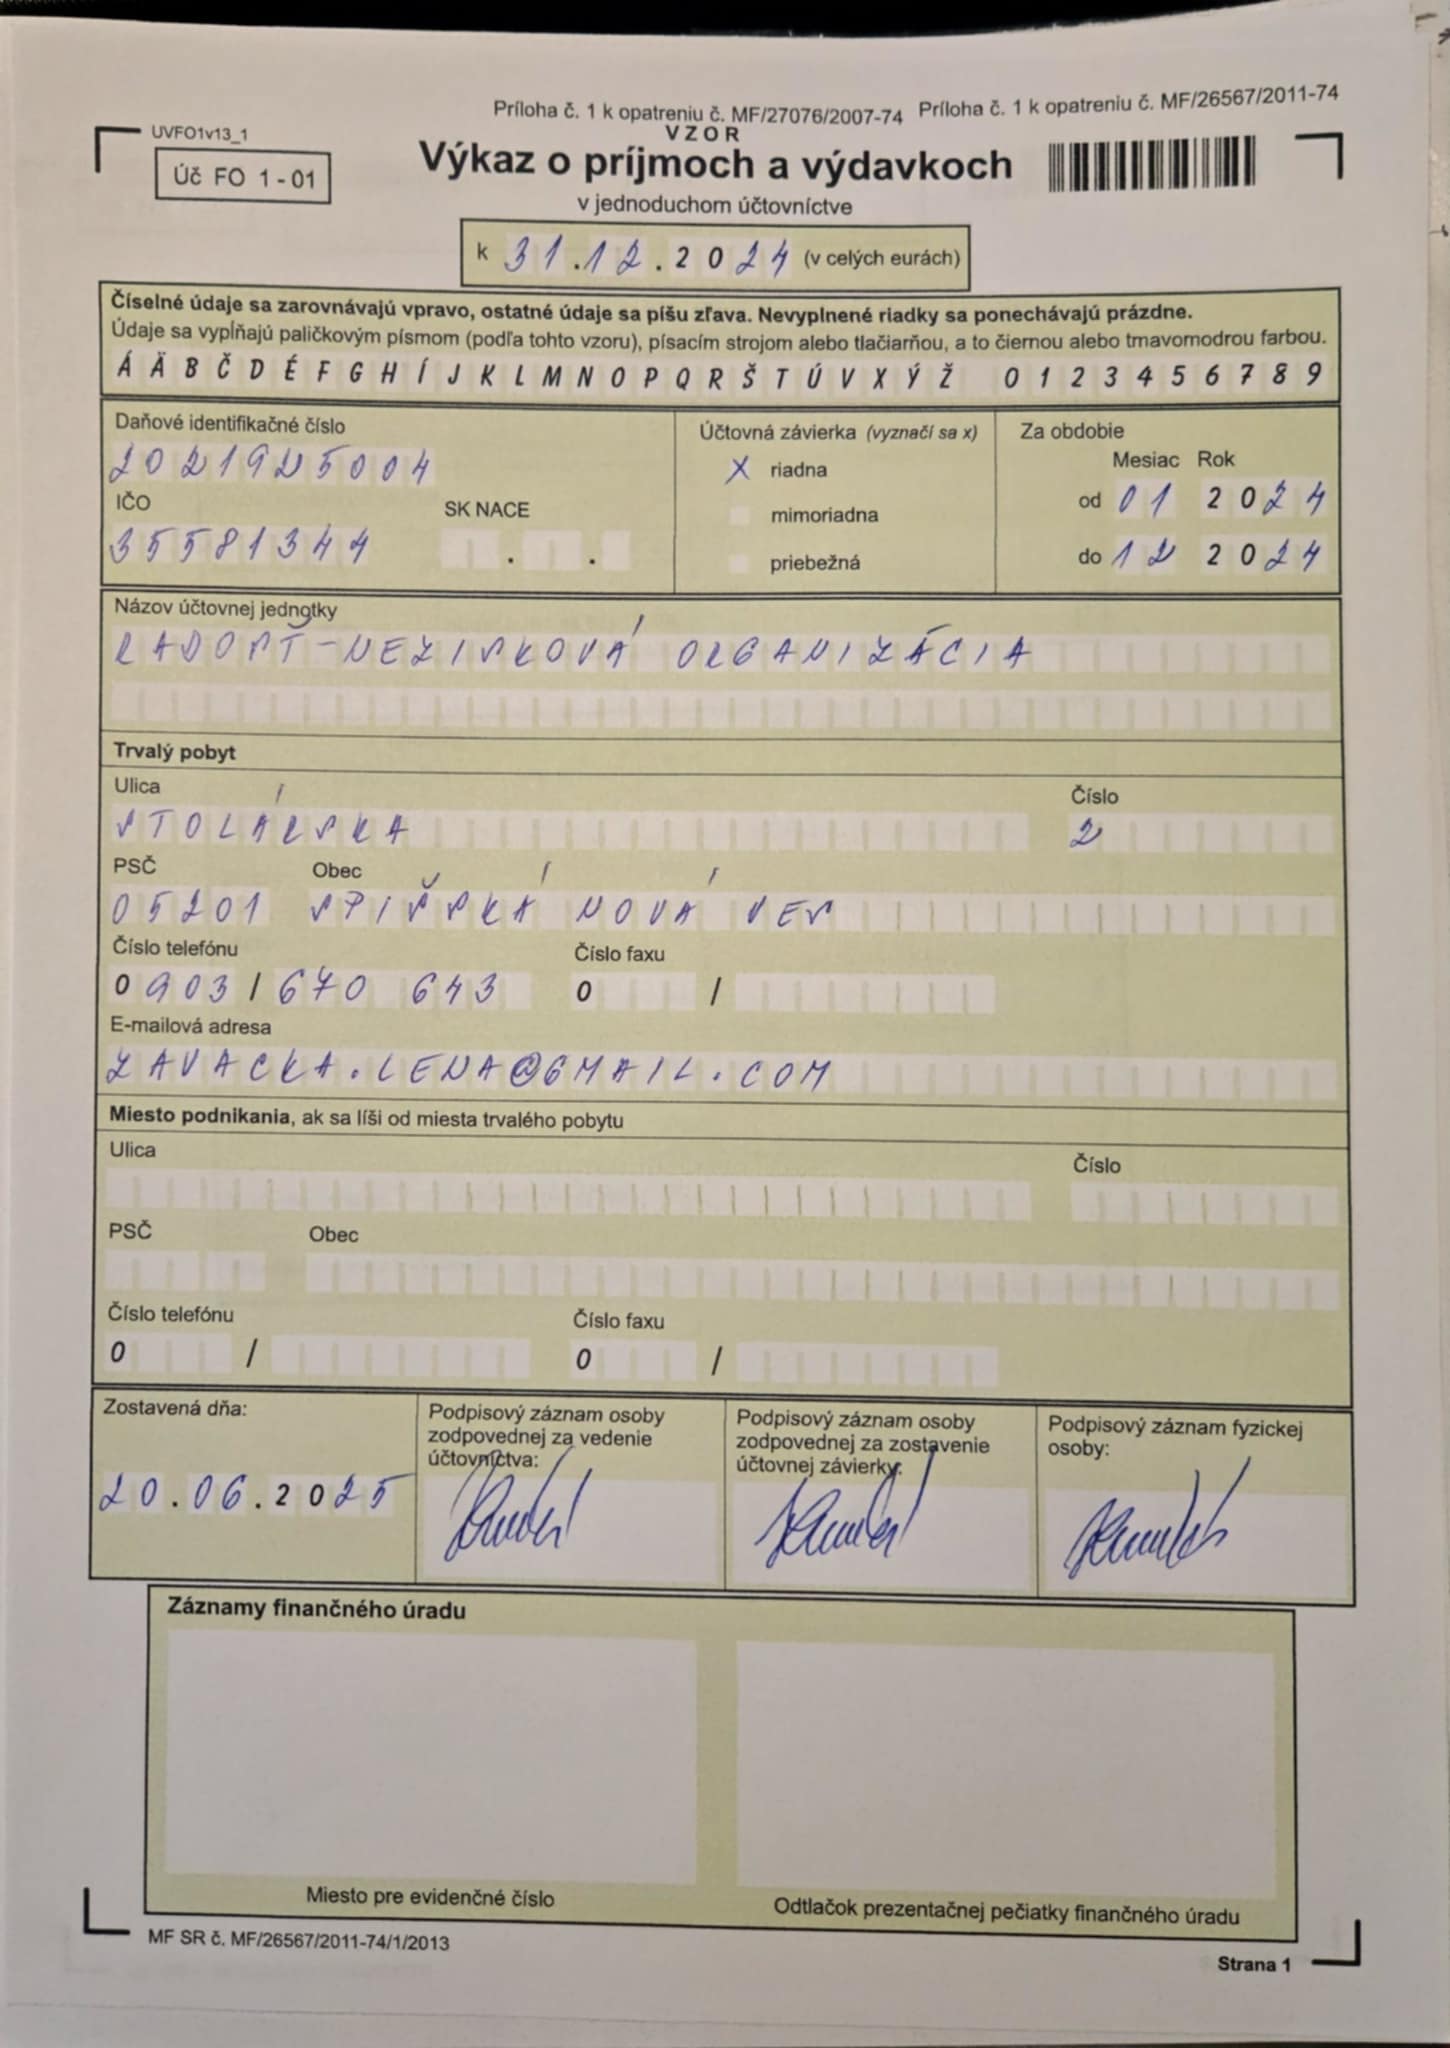 Príloha č. 1 k opatreniu č. MF/27076/2007-74 Príloha č. 1 k opatreniu č. MF/26567/2011-74
UVFO1v13_1
VZOR
Úč FO 1 - 01
Výkaz o príjmoch a výdavkoch
v jednoduchom účtovníctve
k 31.12.2024 (v celých eurách)
Číselné údaje sa zarovnávajú vpravo, ostatné údaje sa píšu zľava. Nevyplnené riadky sa ponechávajú prázdne.
Údaje sa vypĺňajú paličkovým písmom (podľa tohto vzoru), písacím strojom alebo tlačiarňou, a to čiernou alebo tmavomodrou farbou.
Á Ä B Č D É F G H Í J K L M N O P Q R Š T Ú V X Ý Ž 0 1 2 3 4 5 6 7 8 9
Daňové identifikačné číslo
2021925004
IČO
SK NACE
35581344 . .
Účtovná závierka (vyznačí sa x)
X riadna
mimoriadna
priebežná
Za obdobie
Mesiac Rok
od 01 2024
do 12 2024
Názov účtovnej jednotky
RADOSŤ-NEZISKOVÁ ORGANIZÁCIA
Trvalý pobyt
Ulica Číslo
STOLÁRSKA 2
PSČ Obec
05201 SPIŠSKÁ NOVÁ VES
Číslo telefónu Číslo faxu
0903/670 643 0 /
E-mailová adresa
ZAVACKA.LENA@GMAIL.COM
Miesto podnikania, ak sa líši od miesta trvalého pobytu
Ulica Číslo
PSČ Obec
Číslo telefónu Číslo faxu
0 / 0 /
Zostavená dňa:
20.06.2025
Podpisový záznam osoby
zodpovednej za vedenie
účtovníctva:
Podpisový záznam osoby
zodpovednej za zostavenie
účtovnej závierky:
Podpisový záznam fyzickej
osoby:
Záznamy finančného úradu
Miesto pre evidenčné číslo
Odtlačok prezentačnej pečiatky finančného úradu
MF SR č. MF/26567/2011-74/1/2013
Strana 1